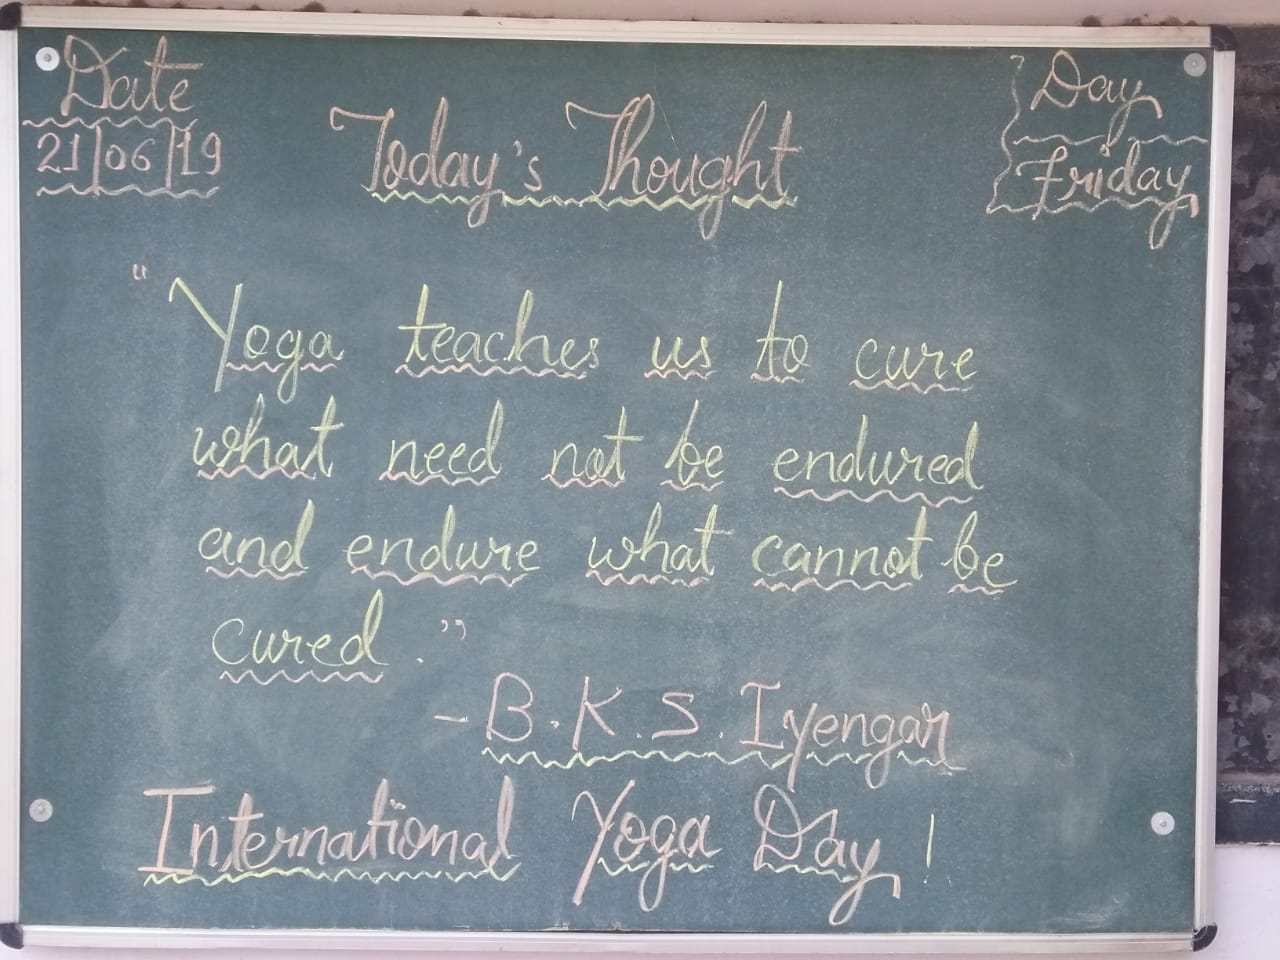 Date
21/06/19
Today's Thought
Day
Friday
"Yoga teaches us to cure
what need not be endured
and endure what cannot be
cured."
- B.K.S. Iyengar
International Yoga Day!